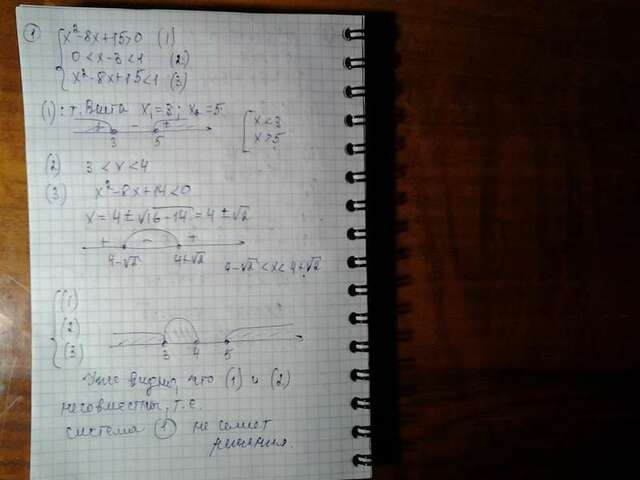 1
x²-8x+15>0 (1)
0<x-3<1 (2)
x²-8x+15<1 (3)
(1): т. Виета x₁=3; x₂=5
+ - +
3 5
x<3
x>5
(2) 3<x<4
(3) x²-8x+14<0
x=4±√16-14=4±√2
+ - +
4-√2 4+√2
4-√2<x<4+√2
(1)
(2)
(3)
3 4 5
Уже видно, что (1) и (2)
несовместны, т.е.
система 1 не имеет
решения.